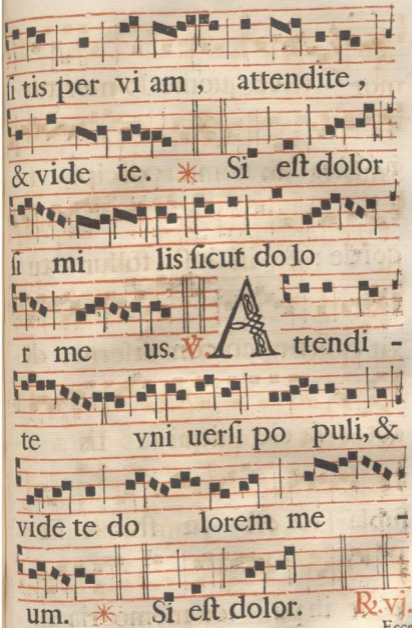 ſi tis per vi am , attendite ,
& vide te. * Si eſt dolor
ſi mi lis ſicut do lo
r me us. ℣ Attendi -
te vni uerſi po puli, &
vide te do lorem me -
um. * Si eſt dolor. ℟. vj.
Ecce